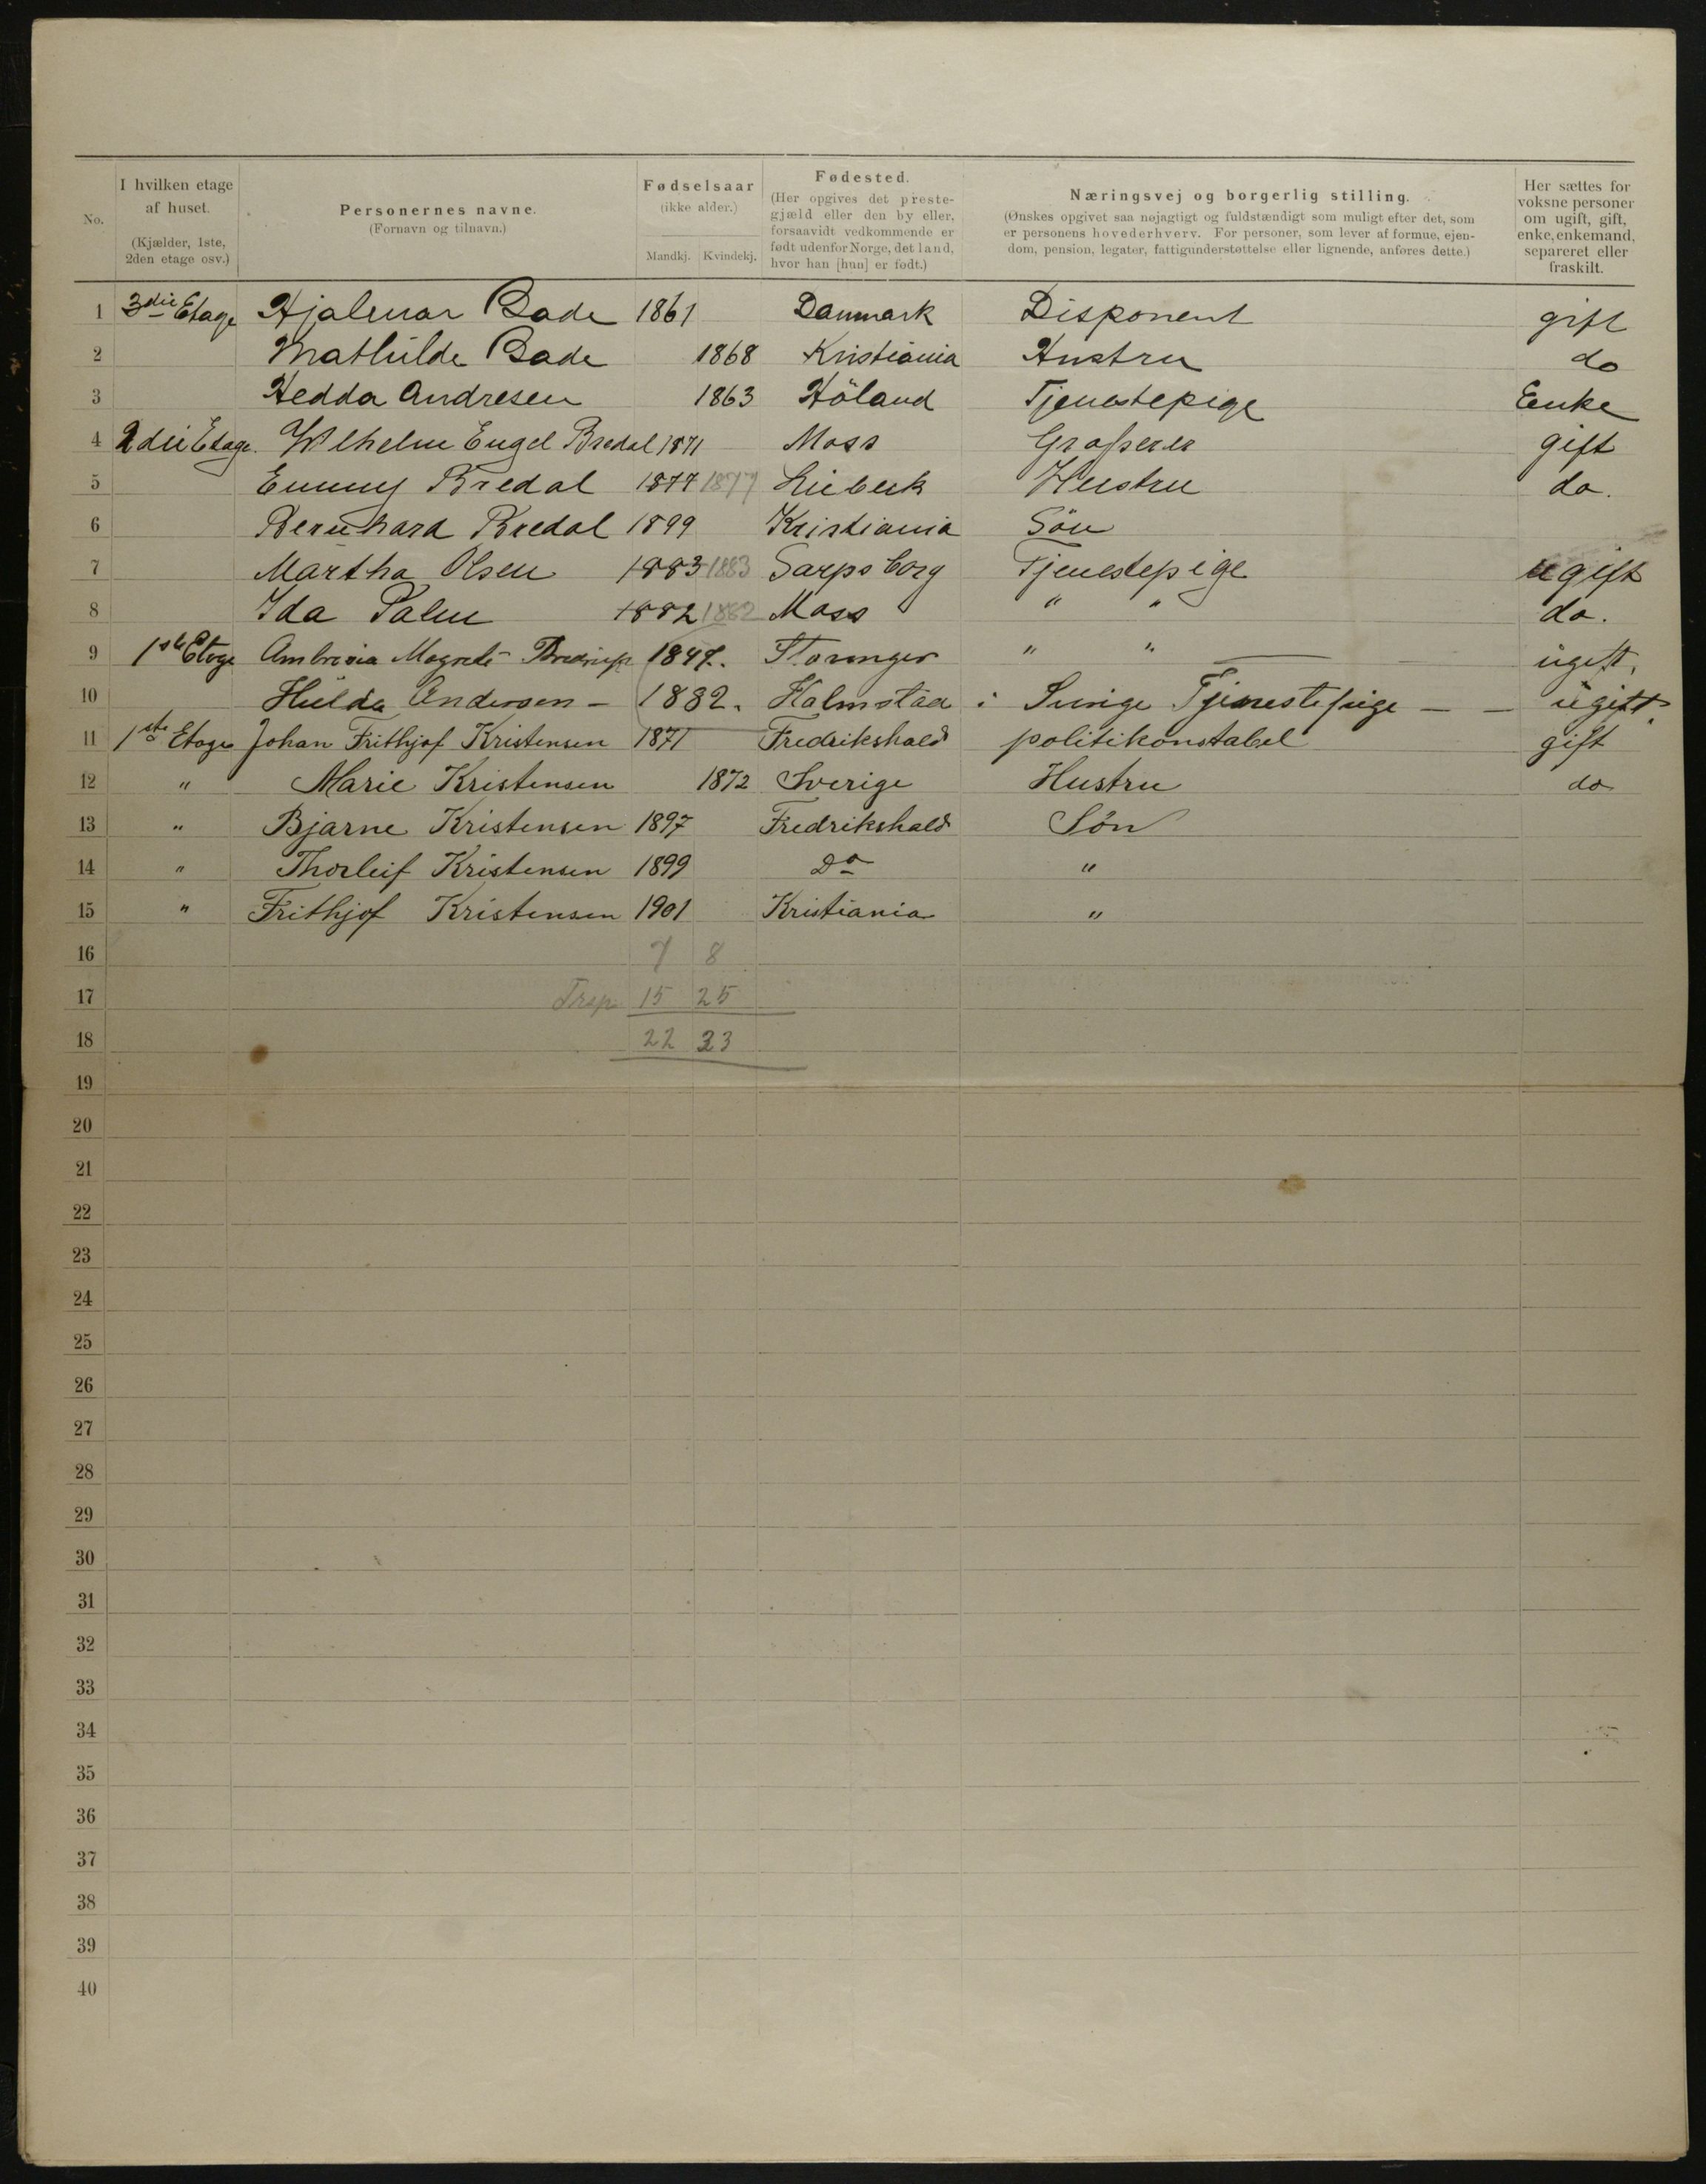 No. I hvilken etage af huset. (Kjælder, 1ste, 2den etage osv.) Personernes navne. (Fornavn og tilnavn.) Fødselsaar (ikke alder.) Mandkj. Kvindekj. Fødested. (Her opgives det prestegjæld eller den by eller, forsaavidt vedkommende er født udenfor Norge, det land, hvor han [hun] er født.) Næringsvej og borgerlig stilling. (Ønskes opgivet saa nøjagtigt og fuldstændigt som muligt efter det, som er personens hovederhverv. For personer, som lever af formue, ejendom, pension, legater, fattigunderstøttelse eller lignende, anføres dette.) Her sættes for voksne personer om ugift, gift, enke, enkemand, separeret eller fraskilt.
1 3die Etage Hjalmar Bade 1861 Danmark Disponent gift
2 Mathilde Bade 1868 Kristiania Hustru do
3 Hedda Andresen 1863 Höland Tjenestepige Enke
4 2die Etage. Wilhelm Engel Bredal 1871 Moss Grosserer gift
5 Emmy Bredal 1877 1877 Lübeck Hustru do.
6 Bernhard Bredal 1899 Kristiania Sön
7 Martha Olsen 1883 1883 Sarpsborg Tjenestepige ugift
8 Ida Palm 1882 1882 Moss " " do.
9 1ste Etage Magrete 1847. " " ugift.
10 Hulda Andersen – 1882. Halmstad i Sverige Tjenestepige — — ugift.
11 1ste Etage Johan Frithjof Kristensen 1871 Fredrikshald politikonstabel gift
12 " Marie Kristensen 1872 Sverige Hustru do
13 " Bjarne Kristensen 1897 Fredrikshald Søn
14 " Thorleif Kristensen 1899 Do "
15 " Frithjof Kristensen 1901 Kristiania "
16 7 8
17 Trsp. 15 25
18 22 33
19
20
21
22
23
24
25
26
27
28
29
30
31
32
33
34
35
36
37
38
39
40